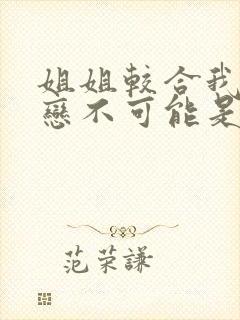 姐姐較合我
戀不可能是
范荣謙